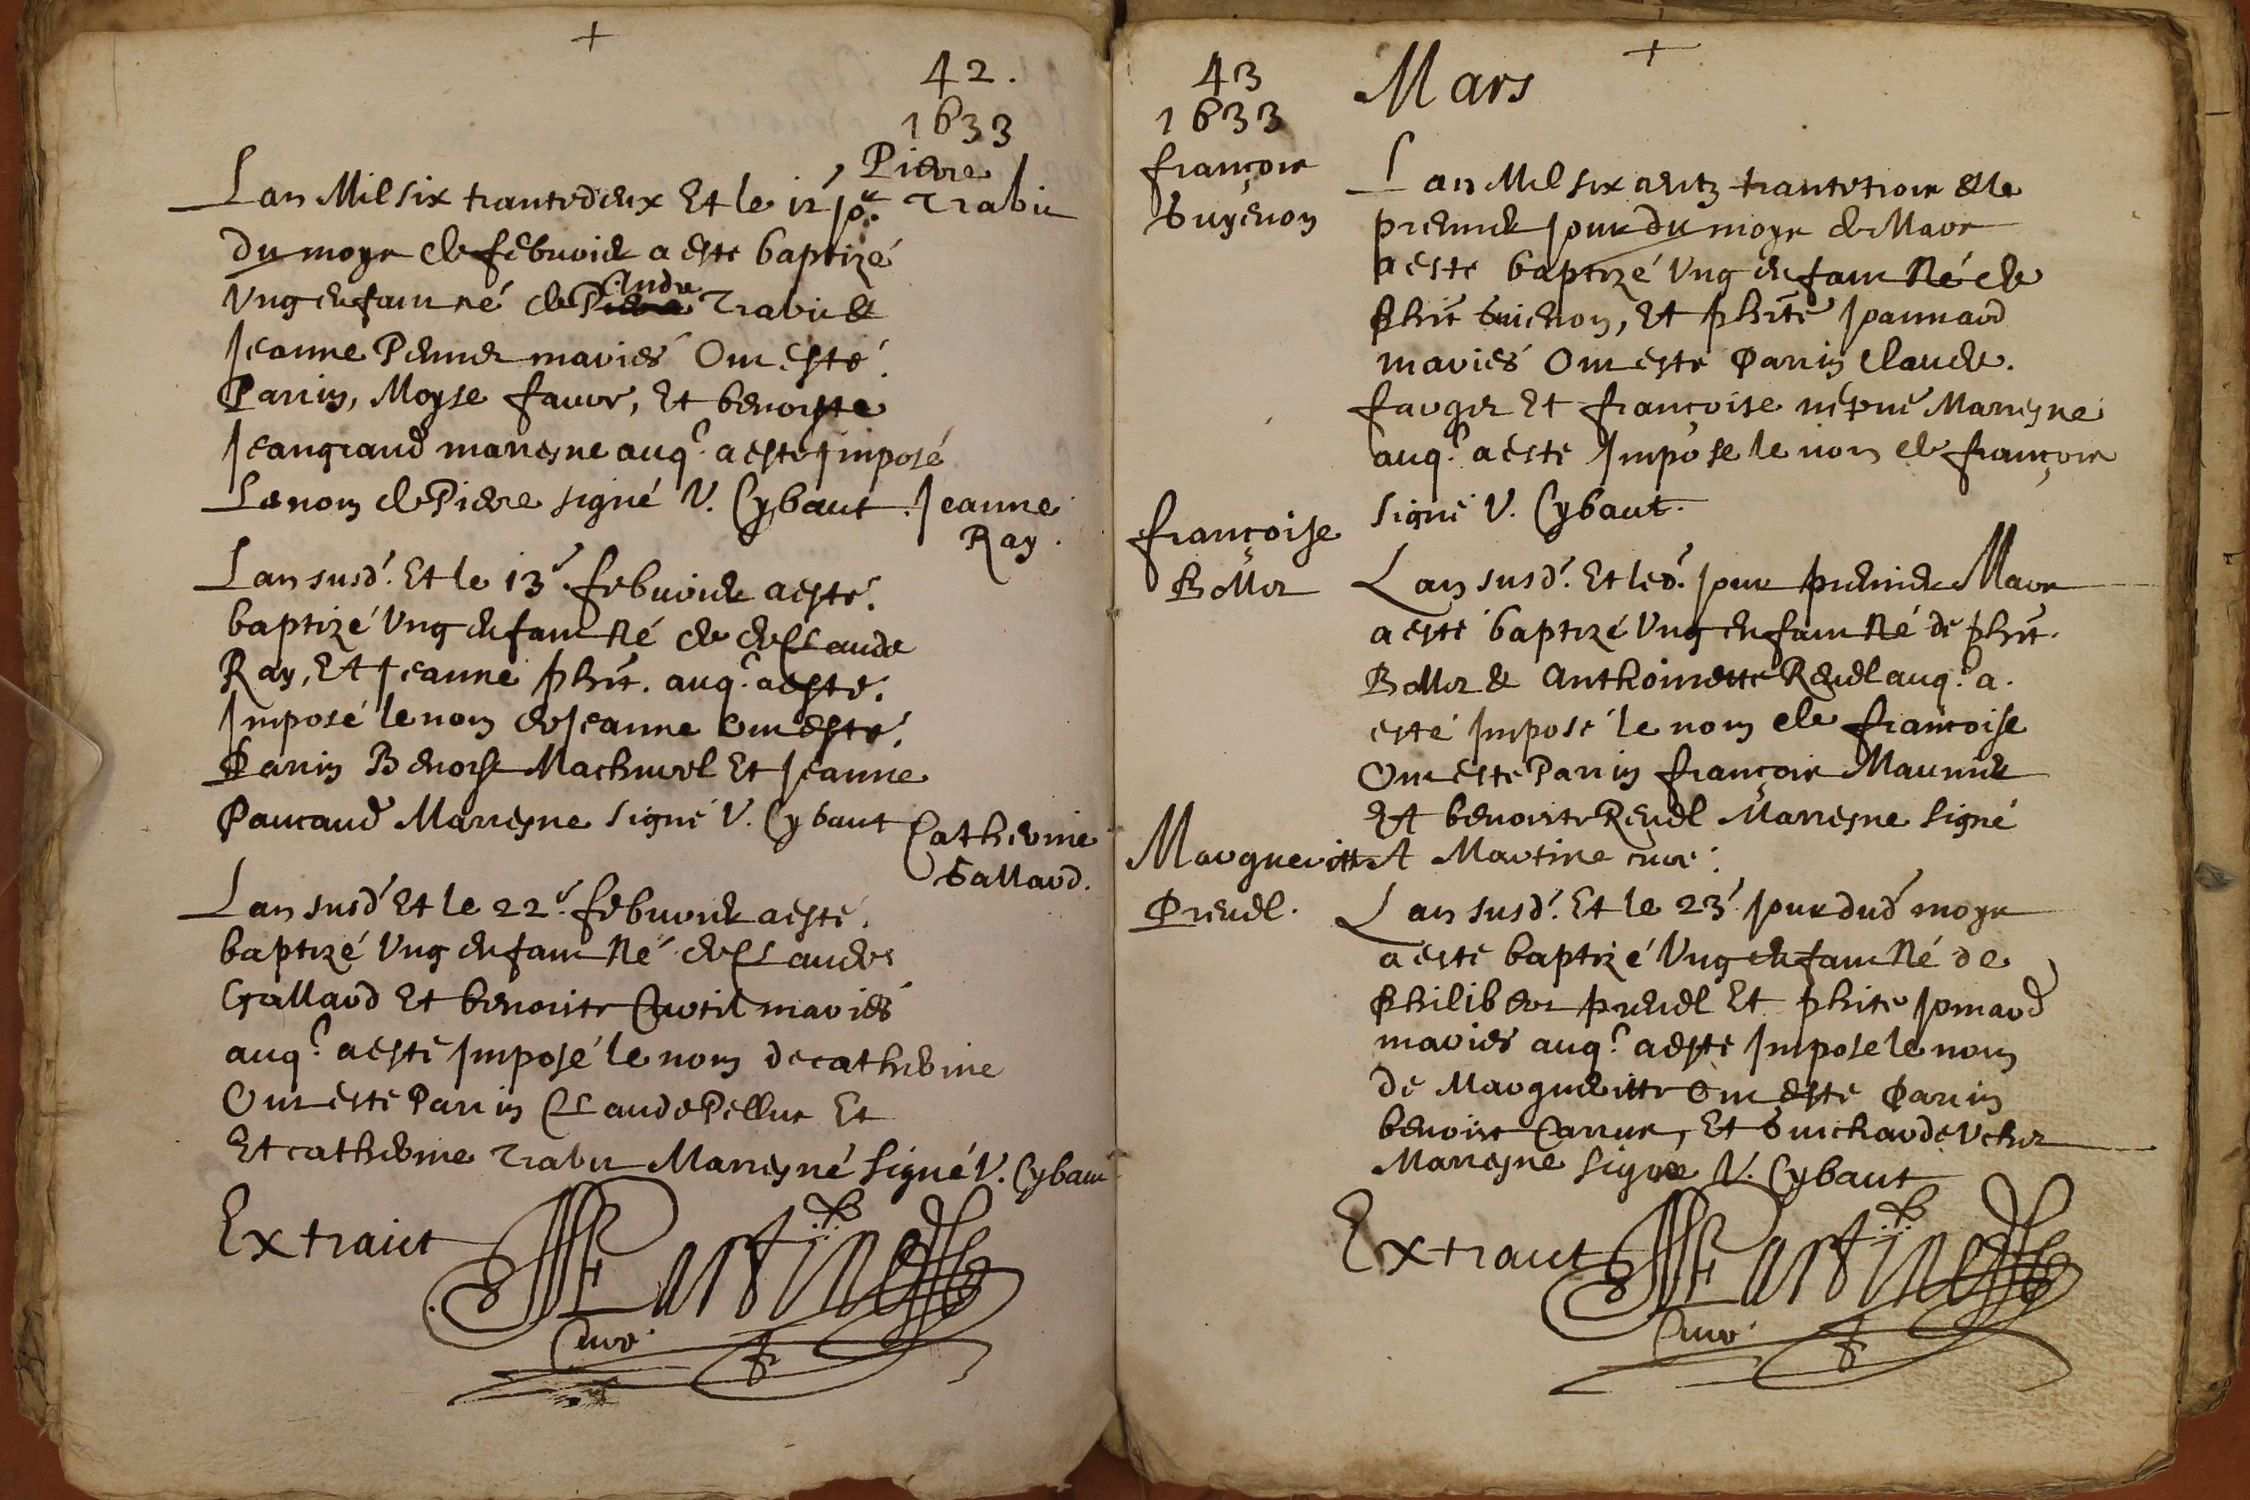 42.
1633
Pierre
Trabu
Lan Mil six trantedeux Et le 12 jo.r
du moys de febvrier a esté baptizé
Ung enfant né de Pierre Andre Trabu &
Jeanne Perrier mariés Ont esté
Parrin, Moyse favre, Et benoiste
Jeangrand marresne auq.l a esté Imposé
Le nom de Pierre signé V. Cybaut
Jeanne
Ray.
Lan susd. Et le 13e. febvrier a esté
baptizé Ung enfant Né de de Claude
Ray, Et Jeanne phit. auq.l a esté
Imposé le nom de Jeanne Ont esté
Parrin Benoist Machurel Et Jeanne
Signé V. Cybaut
Marresne
Catherine
Gallard.
Lan susd Et le 22e. febvrier a esté
baptizé Ung enfant Né de Claude
Gallard Et benoiste Curtil mariés
auq.l a esté Imposé le nom de catherine
Ont esté Parrin Claude Pellux Et
Et catherine Trabu Marresne Signé V. Cybaut
Extraict
Martine
Curé
43
1633
Mars
françois
Guyenon
Lan Mil six centz trante trois & le
premier jour du moys de Mars
a esté baptizé Ung enfant Né de
phit Guienon, Et phite Jannard
mariés Ont esté Parrin Claude
fauger Et françoise Marresne
auq.l a esté Imposé le nom de françois
Signé V. Cybaut.
françoise
Bollier
Lan susd. Et led. jour premier Mars
a esté baptizé Ung enfant Né de phit.
Bollier & Anthoinette Revel auq.l a
esté Imposé le nom de francoise
Ont esté Parrin françois Maunier
Et benoiste Revel Marresne Signé
Martine curé
Margueritte
Prevel.
Lan susd. Et le 23e jour dud moys
a esté baptizé Ung enfant Né de
Philibert prevel Et phite Jomard
mariés auq.l a esté Imposé le nom
de Margueritte Ont esté Parrin
benoist Carrux, Et Guicharde Ucher
Marresne Signé V. Cybaut
Extraict
Martine
Curé